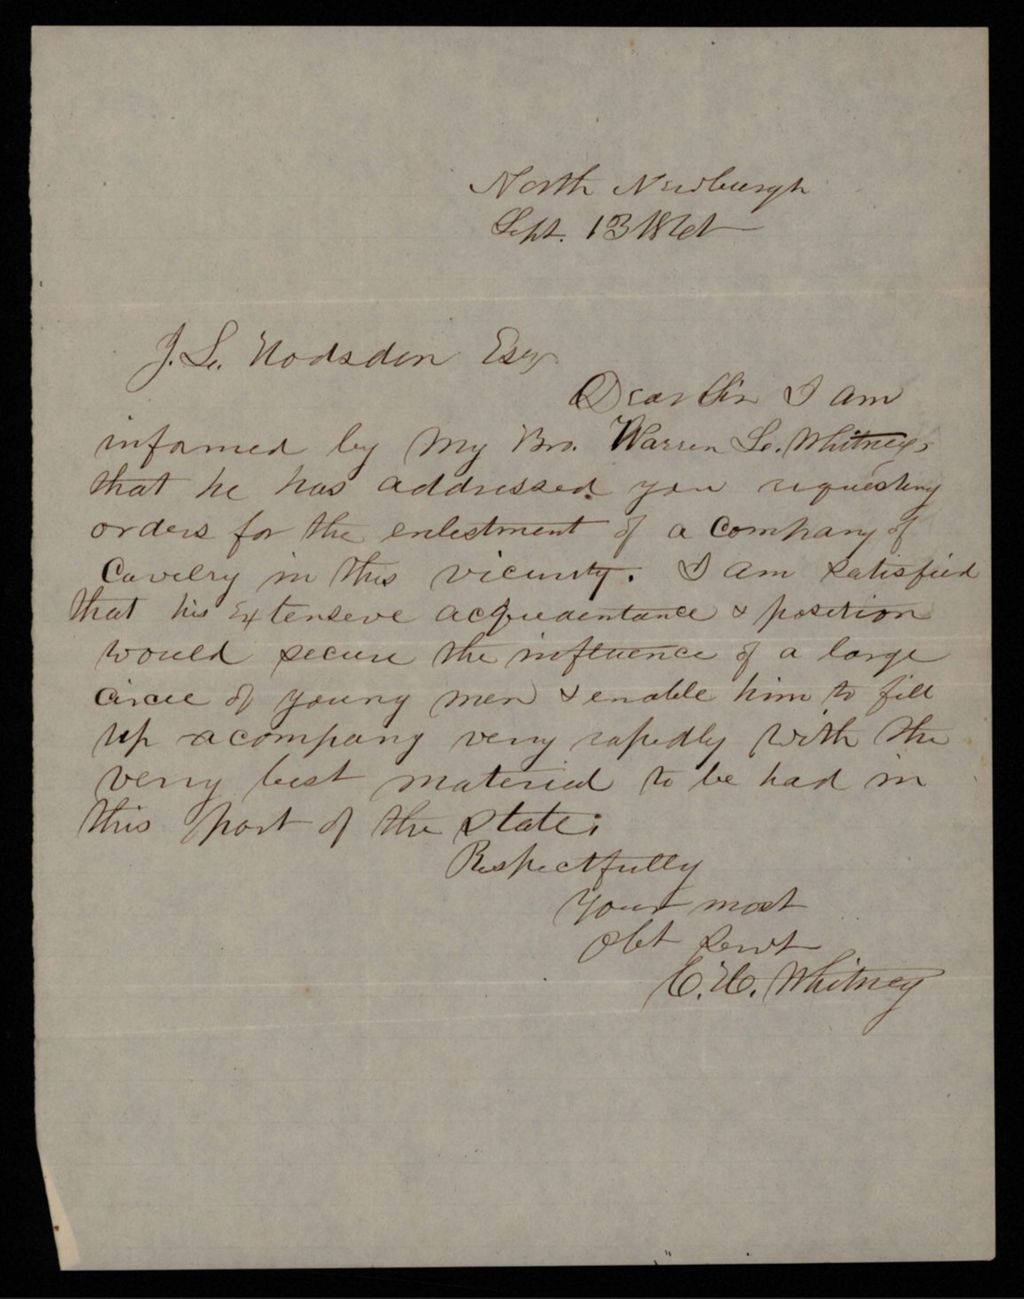 North Newburgh
Sept. 13 1861
J. L. Hodsdon Esq
Dear Sir I am
informed by my Bro. Warren L. Whitney,
that he has addressed you requesting
orders for the enlestment of a Company of
Cavelry in this vicinity. I am satisfied
that his Extenseve acqueentance & position
would secure the influence of a large
circle of young men & enable him to fill
up a company very rapedly with the
very best material to be had in
this part of the state.
Respectfully
Your most
Obt Servt
Whitney